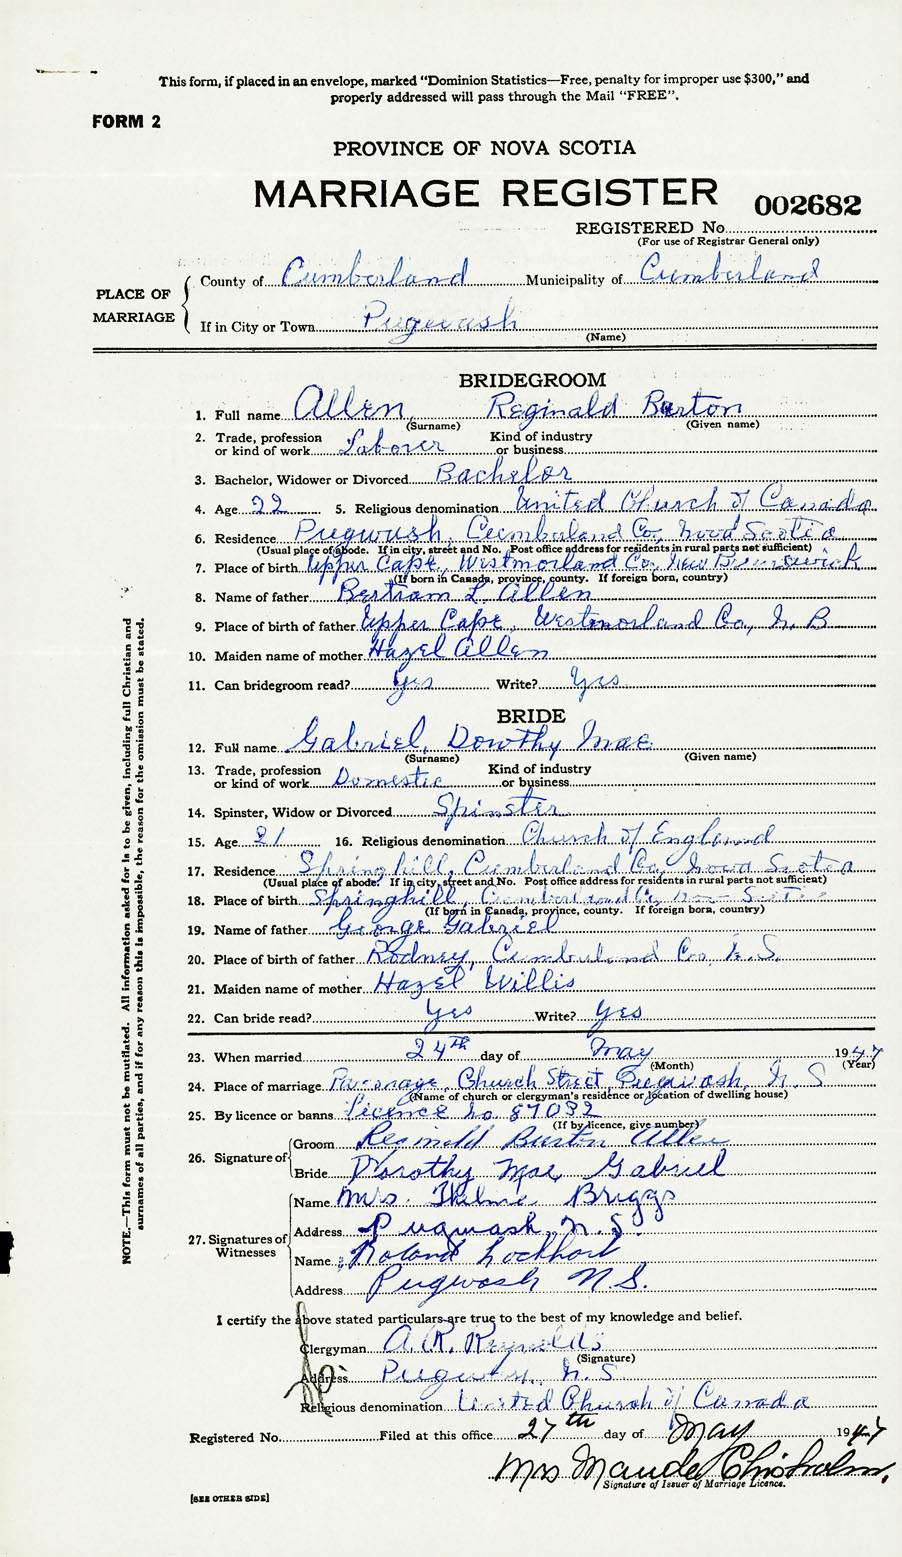 This form, if placed in an envelope, marked “Dominion Statistics—Free, penalty for improper use $300,” and
properly addressed will pass through the Mail “FREE”.
FORM 2
PROVINCE OF NOVA SCOTIA
MARRIAGE REGISTER 002682
REGISTERED No.
(For use of Registrar General only)
PLACE OF MARRIAGE
County of Cumberland Municipality of Cumberland
If in City or Town Pugwash
(Name)
BRIDEGROOM
1. Full name Allen, Reginald Burton
(Surname) (Given name)
2. Trade, profession or kind of work Laborer Kind of industry or business
3. Bachelor, Widower or Divorced Bachelor
4. Age 22 5. Religious denomination United Church of Canada
6. Residence Pugwash, Cumberland Co., Nova Scotia
(Usual place of abode. If in city, street and No. Post office address for residents in rural parts not sufficient)
7. Place of birth Upper Cape, Westmorland Co., New Brunswick
(If born in Canada, province, county. If foreign born, country)
8. Name of father Bertram L. Allen
9. Place of birth of father Upper Cape, Westmorland Co., N. B
10. Maiden name of mother Hazel Allen
11. Can bridegroom read? Yes Write? Yes
BRIDE
12. Full name Gabriel, Dorothy Mae
(Surname) (Given name)
13. Trade, profession or kind of work Domestic Kind of industry or business
14. Spinster, Widow or Divorced Spinster
15. Age 21 16. Religious denomination Church of England
17. Residence Springhill, Cumberland Co., Nova Scotia
(Usual place of abode. If in city, street and No. Post office address for residents in rural parts not sufficient)
18. Place of birth Springhill, Cumberland Co., Nova Scotia
(If born in Canada, province, county. If foreign born, country)
19. Name of father George Gabriel
20. Place of birth of father Rodney, Cumberland Co. N.S.
21. Maiden name of mother Hazel Willis
22. Can bride read? Yes Write? Yes
23. When married 24th day of May 1947
(Month) (Year)
24. Place of marriage Parsonage, Church Street, Pugwash, N. S
(Name of church or clergyman’s residence or location of dwelling house)
25. By licence or banns Licence No. 87032
(If by licence, give number)
26. Signature of Groom Reginald Burton Allen
Bride Dorothy Mae Gabriel
27. Signatures of Witnesses
Name Mrs. Thelma Briggs
Address Pugwash, N.S.
Name Roland Lockhart
Address Pugwash N.S.
I certify the above stated particulars are true to the best of my knowledge and belief.
Clergyman A. R. Reynolds
(Signature)
Address Pugwash, N. S.
Religious denomination United Church of Canada
Registered No. Filed at this office 27th day of May 1947
Mrs Maude Chisholm.
Signature of Issuer of Marriage Licence.
[SEE OTHER SIDE]
NOTE.—This form must not be mutilated. All information asked for is to be given, including full Christian and
surnames of all parties, and if for any reason this is impossible, the reason for the omission must be stated.